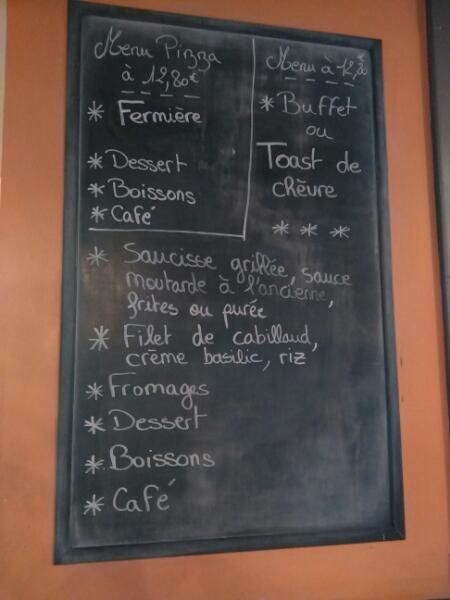 Menu Pizza
à 12,80€
* Fermière
* Dessert
* Boissons
* Café
Menu à
* Buffet
ou
Toast de
chèvre
* * *
* Saucisse grillée, sauce
moutarde à l'ancienne,
frites ou purée
* Filet de cabillaud,
crème basilic, riz
* Fromages
* Dessert
* Boissons
* Café